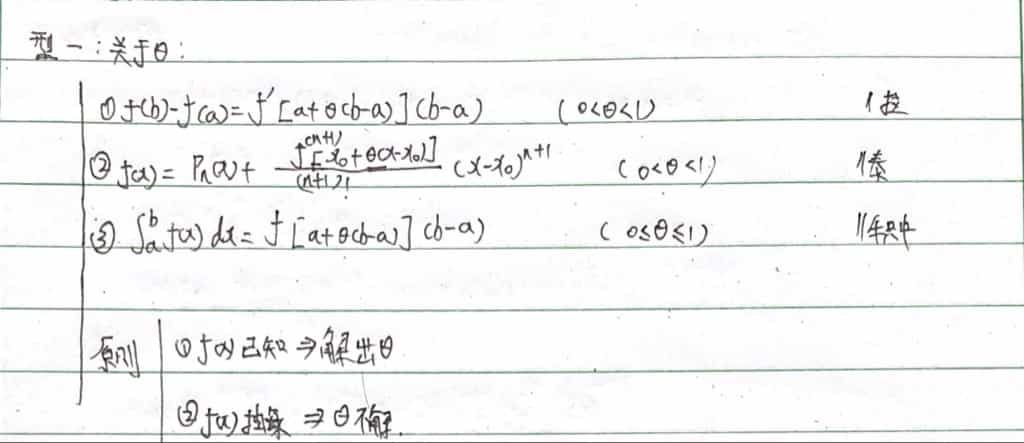 型一:关于θ:
① f(b)-f(a)=f'[a+θ(b-a)](b-a) (0<θ<1) //拉
② f(x)=Pn(x)+ f^(n+1)[x0+θ(x-x0)]/(n+1)! (x-x0)^n+1 (0<θ<1) //泰
③ ∫_a^b f(x)dx=f[a+θ(b-a)](b-a) (0≤θ≤1) //积中
原则 ① f(x)已知⇒解出θ
② f(x)抽象⇒θ不解.